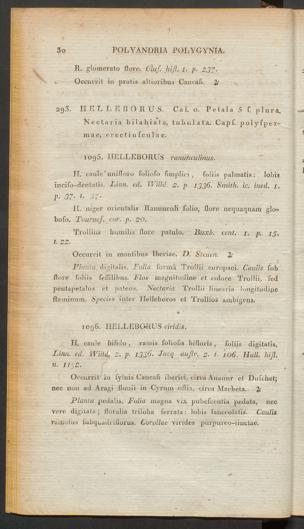 30 POLYANDRIA POLYGYNIA.
R. glomerato flore. Cluſ. hiſt. 1. p. 237.
Occurrit in pratis altioribus Caucaſi. ♃
293. HELLEBORUS. Cal. 0. Petala 5 ſ. plura.
Nectaria bilabiata, tubulata. Capſ. polyſper-
mae, erectiuſculae.
1095. HELLEBORUS ranunculinus.
H. caule unifloro folioſo ſimplici, foliis palmatis: lobis
inciſo-dentatis. Linn. ed. Willd. 2. p. 1336. Smith. ic. ined. 1.
p. 37. t. 37.
H. niger orientalis Ranunculi folio, flore nequaquam glo-
boſo. Tournef. cor. p. 20.
Trollius humilis flore patulo. Buxb. cent. 1. p. 15.
t. 22.
Occurrit in montibus Iberiae. D. Steven. ♃
Planta digitalis. Folia formâ Trollii europaei. Caulis ſub
flore foliis ſeſſilibus. Flos magnitudine et colore Trollii, ſed
pentapetalus et patens. Nectaria Trollii linearia longitudine
ſtaminum. Species inter Helleboros et Trollios ambigena.
1096. HELLEBORUS viridis.
H. caule bifido, ramis folioſis bifloris, foliis digitatis.
Linn. ed. Willd. 2. p. 1336. Jacq. auſtr. 2. t. 106. Hall. hiſt.
n. 1192.
Occurrit in ſylvis Caucaſi iberici, circa Ananur et Duſchet;
nec non ad Aragi fluvii in Cyrum oſtia, circa Mzcheta. ♃
Planta pedalis. Folia magna vix pubeſcentia pedata, nec
vere digitata; floralia triloba ſerrata: lobis lanceolatis. Caulis
ramoſus ſubquadriflorus. Corollae virides purpureo-tinctae.